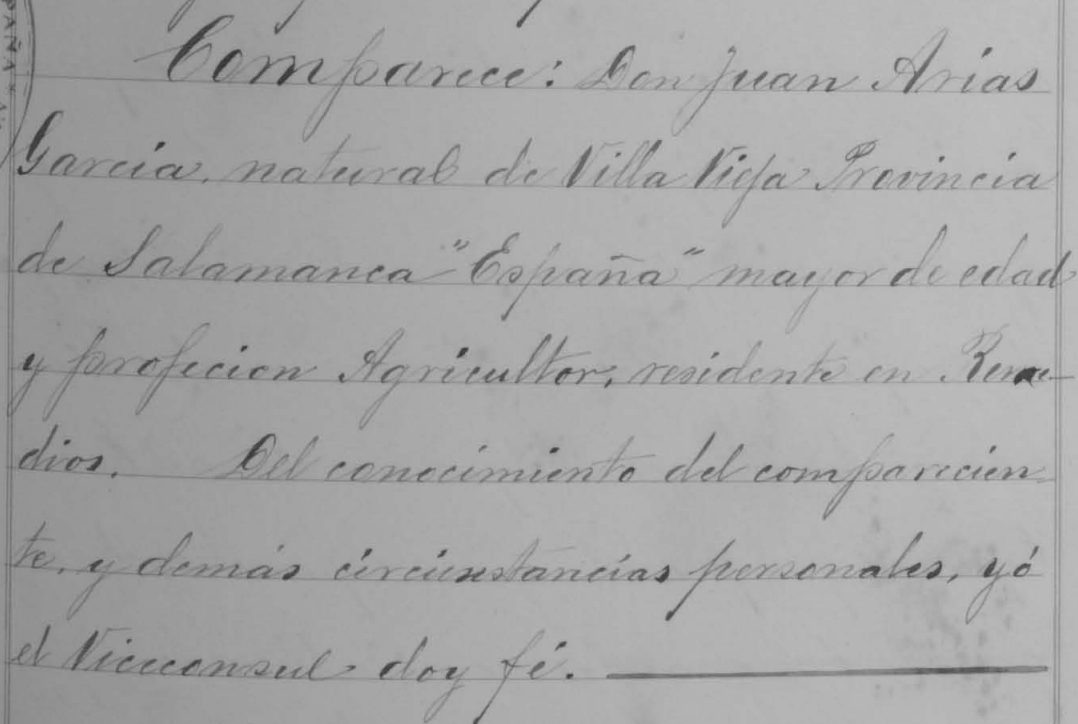 Comparece: Don Juan Arias
Garcia, natural de Villa Vieja Provincia
de Salamanca "España" mayor de edad
y profecion Agricultor, residente en Reme-
dios. Del conocimiento del comparecien-
te, y demás circunstancias personales, yó
el Viceconsul doy fé.